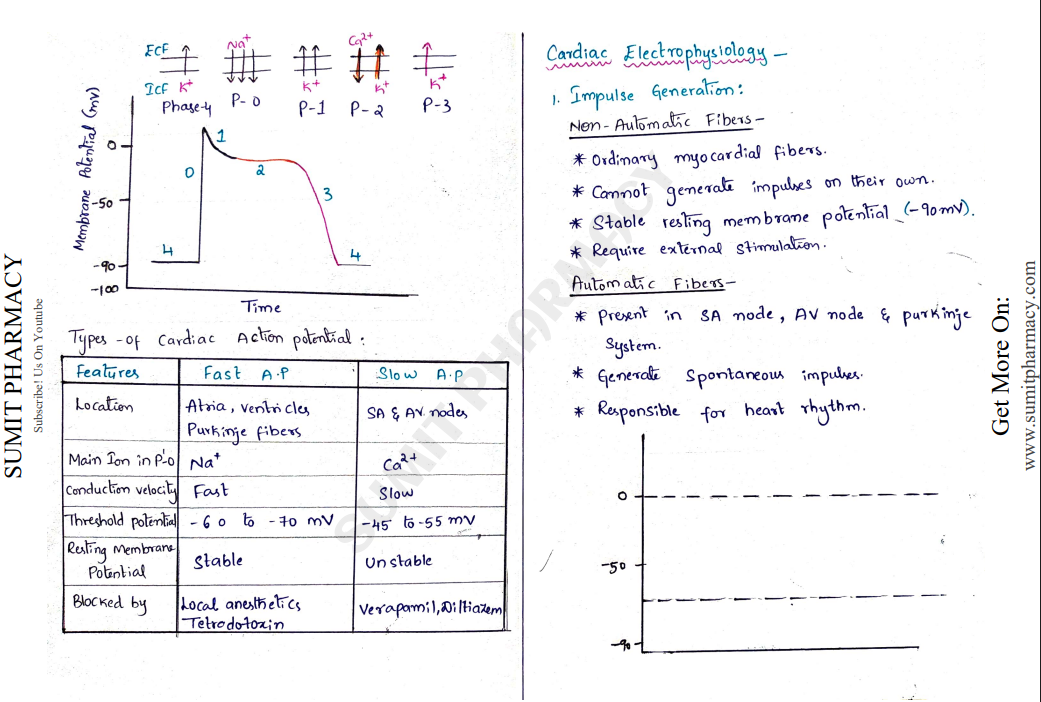 SUMIT PHARMACY
Subscribe! Us On Youtube
ECF
Na+
Ca2+
ICF K+
K+
K+
K+
Phase-4
P-0
P-1
P-2
P-3
Membrane Potential (mv)
0
-50
-90
-100
4
0
1
2
3
4
Time
Types-of Cardiac Action potential:
Features
Fast A.P
Slow A.P
Location
Atria, ventricles
Purkinje fibers
SA & AV nodes
Main Ion in P'0
Na+
Ca2+
Conduction velocity
Fast
Slow
Threshold potential
-60 to -70 mV
-45 to -55 mV
Resting Membrane
Potential
Stable
Unstable
Blocked by
Local anesthetics
Tetrodotoxin
Verapamil, Diltiazem
Cardiac Electrophysiology -
1. Impulse Generation:
Non-Automatic Fibers-
* Ordinary myocardial fibers.
* Cannot generate impulses on their own.
* Stable resting membrane potential (-90mV).
* Require external stimulation.
Automatic Fibers-
* Present in SA node, AV node & purkinje
System.
* Generate Spontaneous impulses.
* Responsible for heart rhythm.
0
-50
-90
SUMIT PHARMACY
Get More On:
www.sumitpharmacy.com